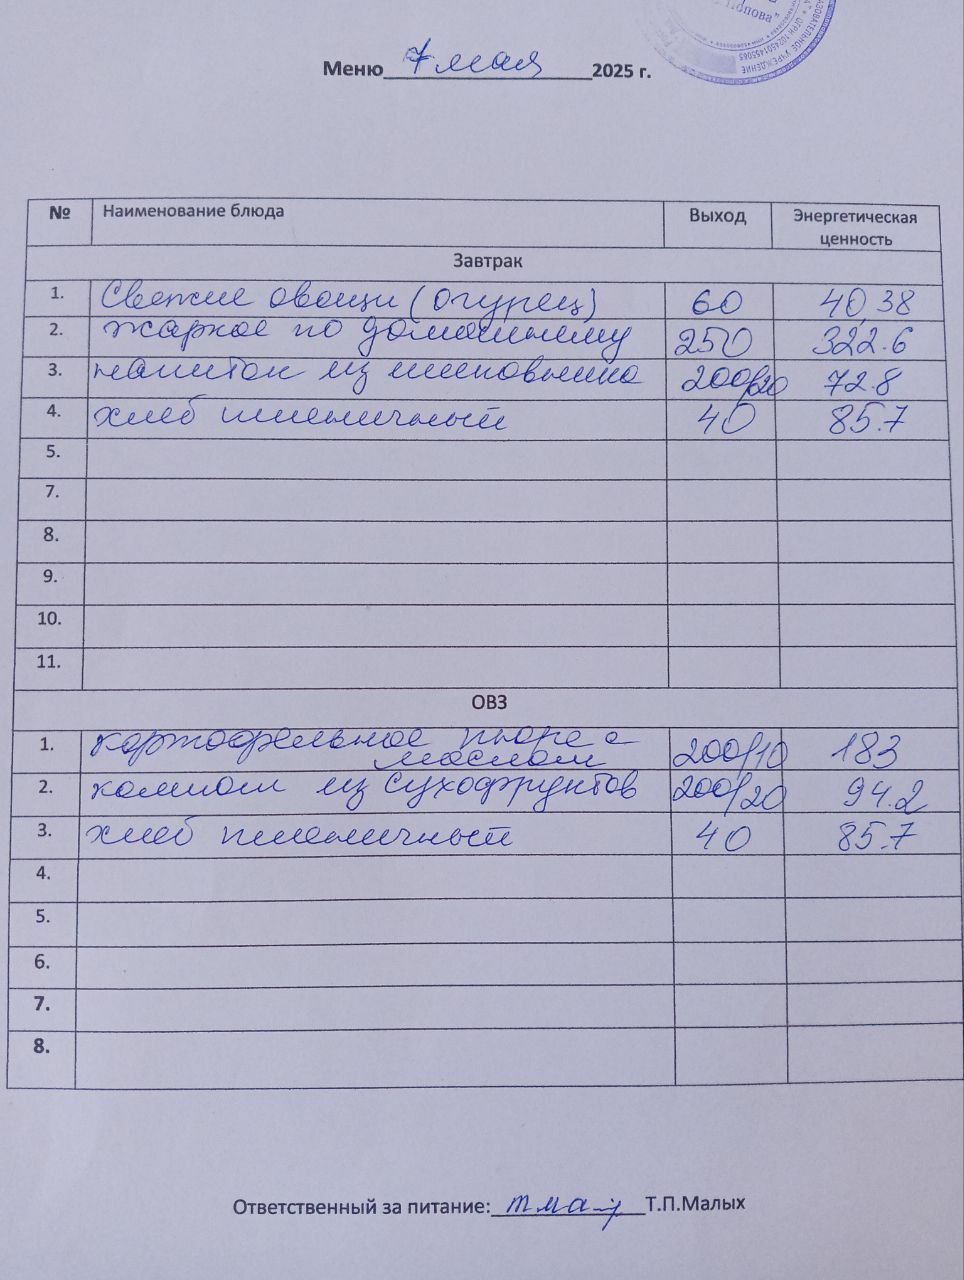 Попова"
ОГРН 1024501455065
УЧРЕЖДЕНИЕ
Меню 7 мая 2025 г.
№ Наименование блюда Выход Энергетическая ценность
Завтрак
1. Свежие овощи (огурец) 60 40,38
2. жаркое по домашнему 250 322.6
3. напиток из шиповника 200/20 72.8
4. хлеб пшеничный 40 85.7
5.
7.
8.
9.
10.
11.
ОВЗ
1. картофельное пюре с маслом 200/10 183
2. компот из сухофруктов 200/20 94.2
3. хлеб пшеничный 40 85.7
4.
5.
6.
7.
8.
Ответственный за питание: Т.П.Малых